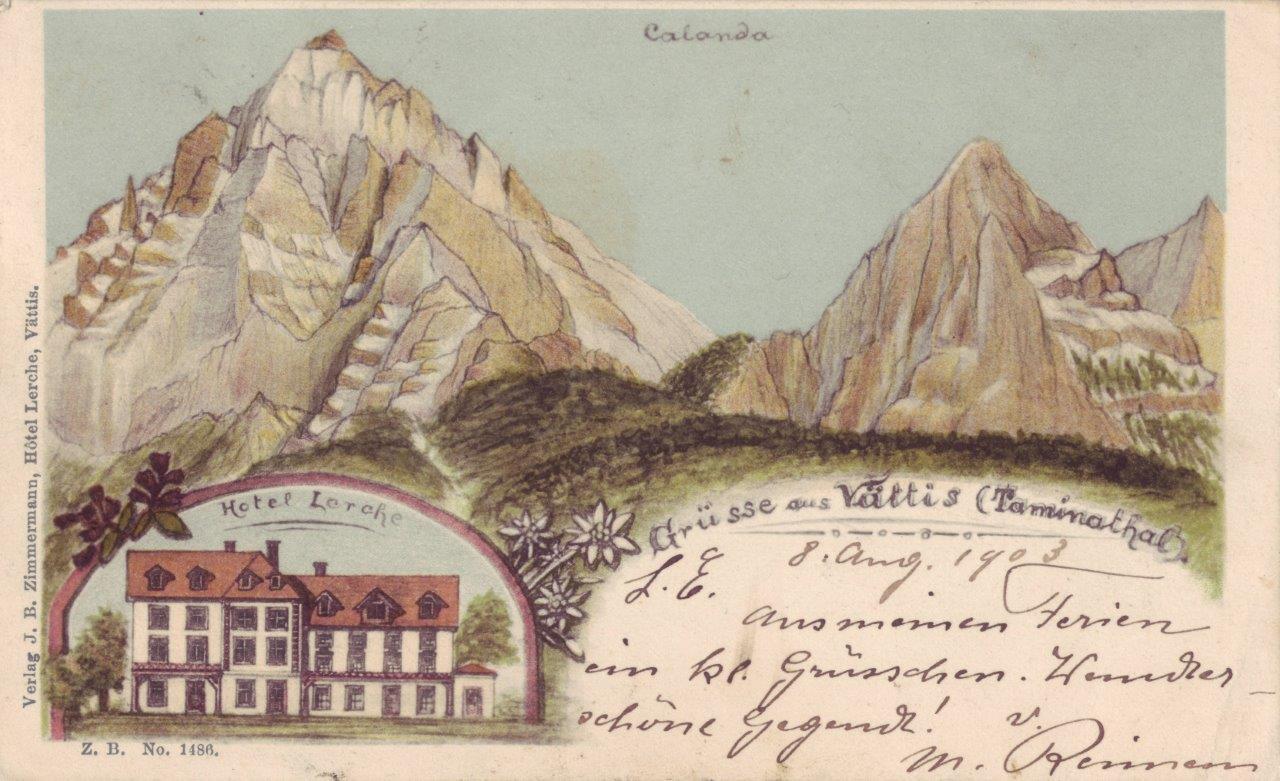 Calanda
Verlag J. B. Zimmermann, Hôtel Lerche, Vättis.
Hotel Lerche
Grüsse aus Vättis (Taminathal).
8. Aug. 1903
L. E.
aus meinen Ferien
ein kl. Grüsschen.
schöne Gegend! v.
M.
Z. B. No. 1486.